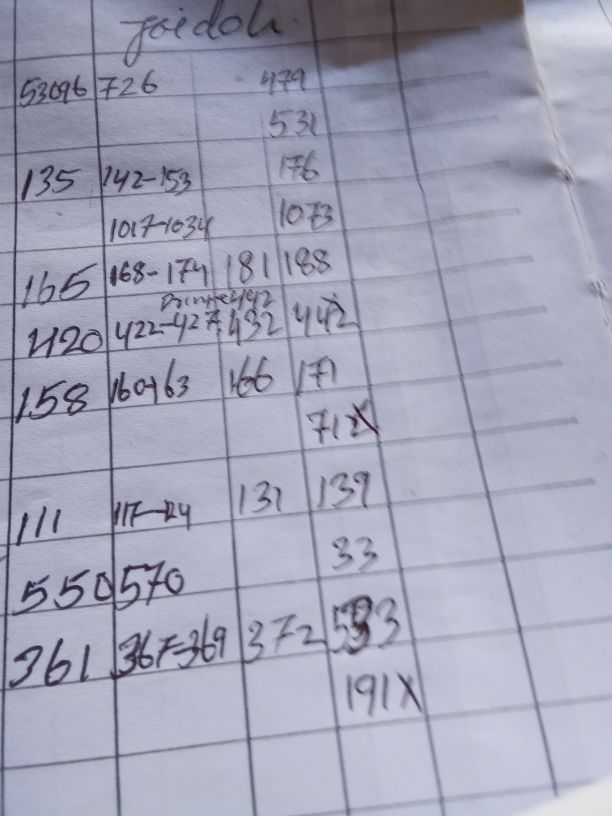 53096 726 479
531
135 142-153 176
1017-1034 1073
165 168-174 181 188
442
420 422-427 432 442
158 160-163 166 171
712X
111 117-124 131 139
33
550 570
361 367-369 372 533
191X